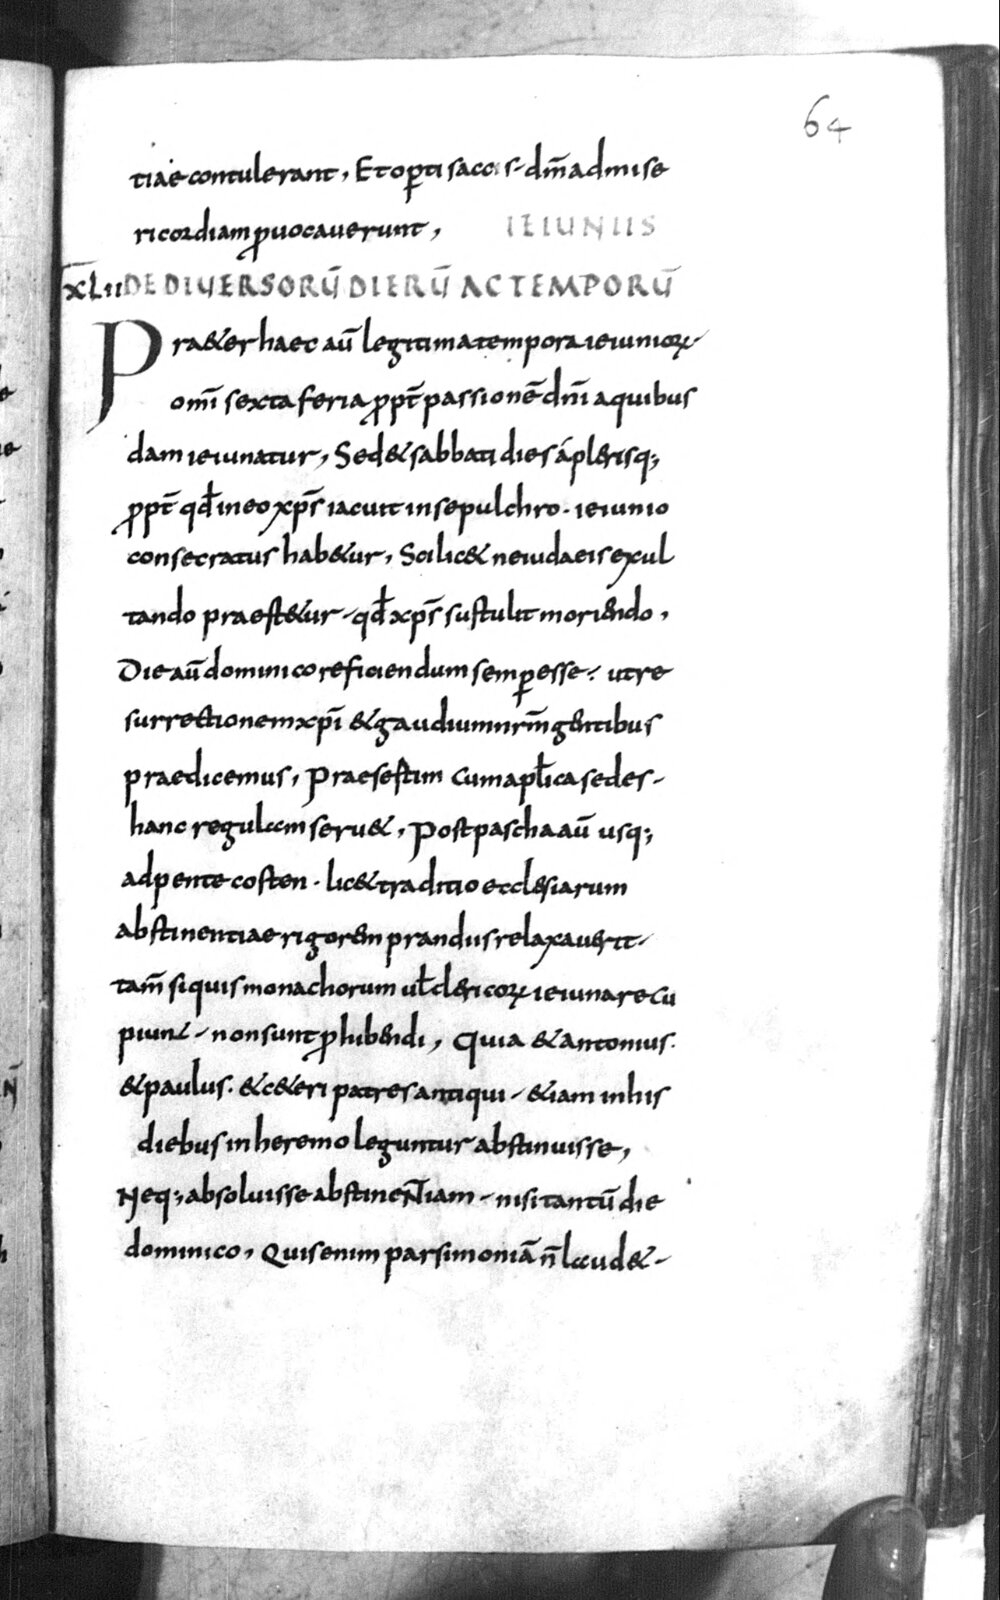 64
tiae contulerant, Et op̲ti saccis dm̄ ad mise
ricordiam ꝓuocauerunt, IEIUNIIS
XLII DE DIVERSORŪ DIERŪ AC TEMPORŪ
Pra&er haec aū legitima tempora ieiunioꝝ
om̄i sexta feria ꝓpt̄ passionē dn̄i a quibus
dam ieiunatur, Sed & sabbati dies á pleriſq;
ꝓpt̄ qđ in eo xp̄s iacuit in sepulchro. ieiunio
consecratus hab&ur, Scilic& ne iudaeis exul
tando praest&ur qđ xp̄s sustulit moriendo,
Die aū dominico reficiendum semꝑ esse; ut re
surrectionem xp̄i & gaudium nrm̄ gentibus
praedicemus, Praesertim cum apl̄ica sedes
hanc regulam seru&, Post pascha aū usq;
ad pentecosten. lic& traditio ecclesiarum
abstinentiae rigorem prandiis relaxauerit
tam̄ si quis monachorum ul̄ clericoꝝ ieiunare cu
piun& non sunt ꝓhibendi, Quia & antonius.
& paulus. & c&eri patres antiqui &iam in his
diebus in heremo leguntur abstinuisse,
Neq; absoluisse abstinentiam nisi tantū die
dominico, Quis enim parsimoniā n̄ laud&